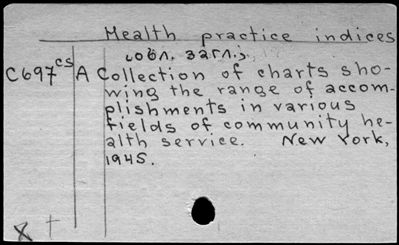 Health practice indices
собл. загл.;
C697cs A Collection of charts sho-
wing the range of accom-
plishments in various
fields of community he-
alth service. New York,
1945.